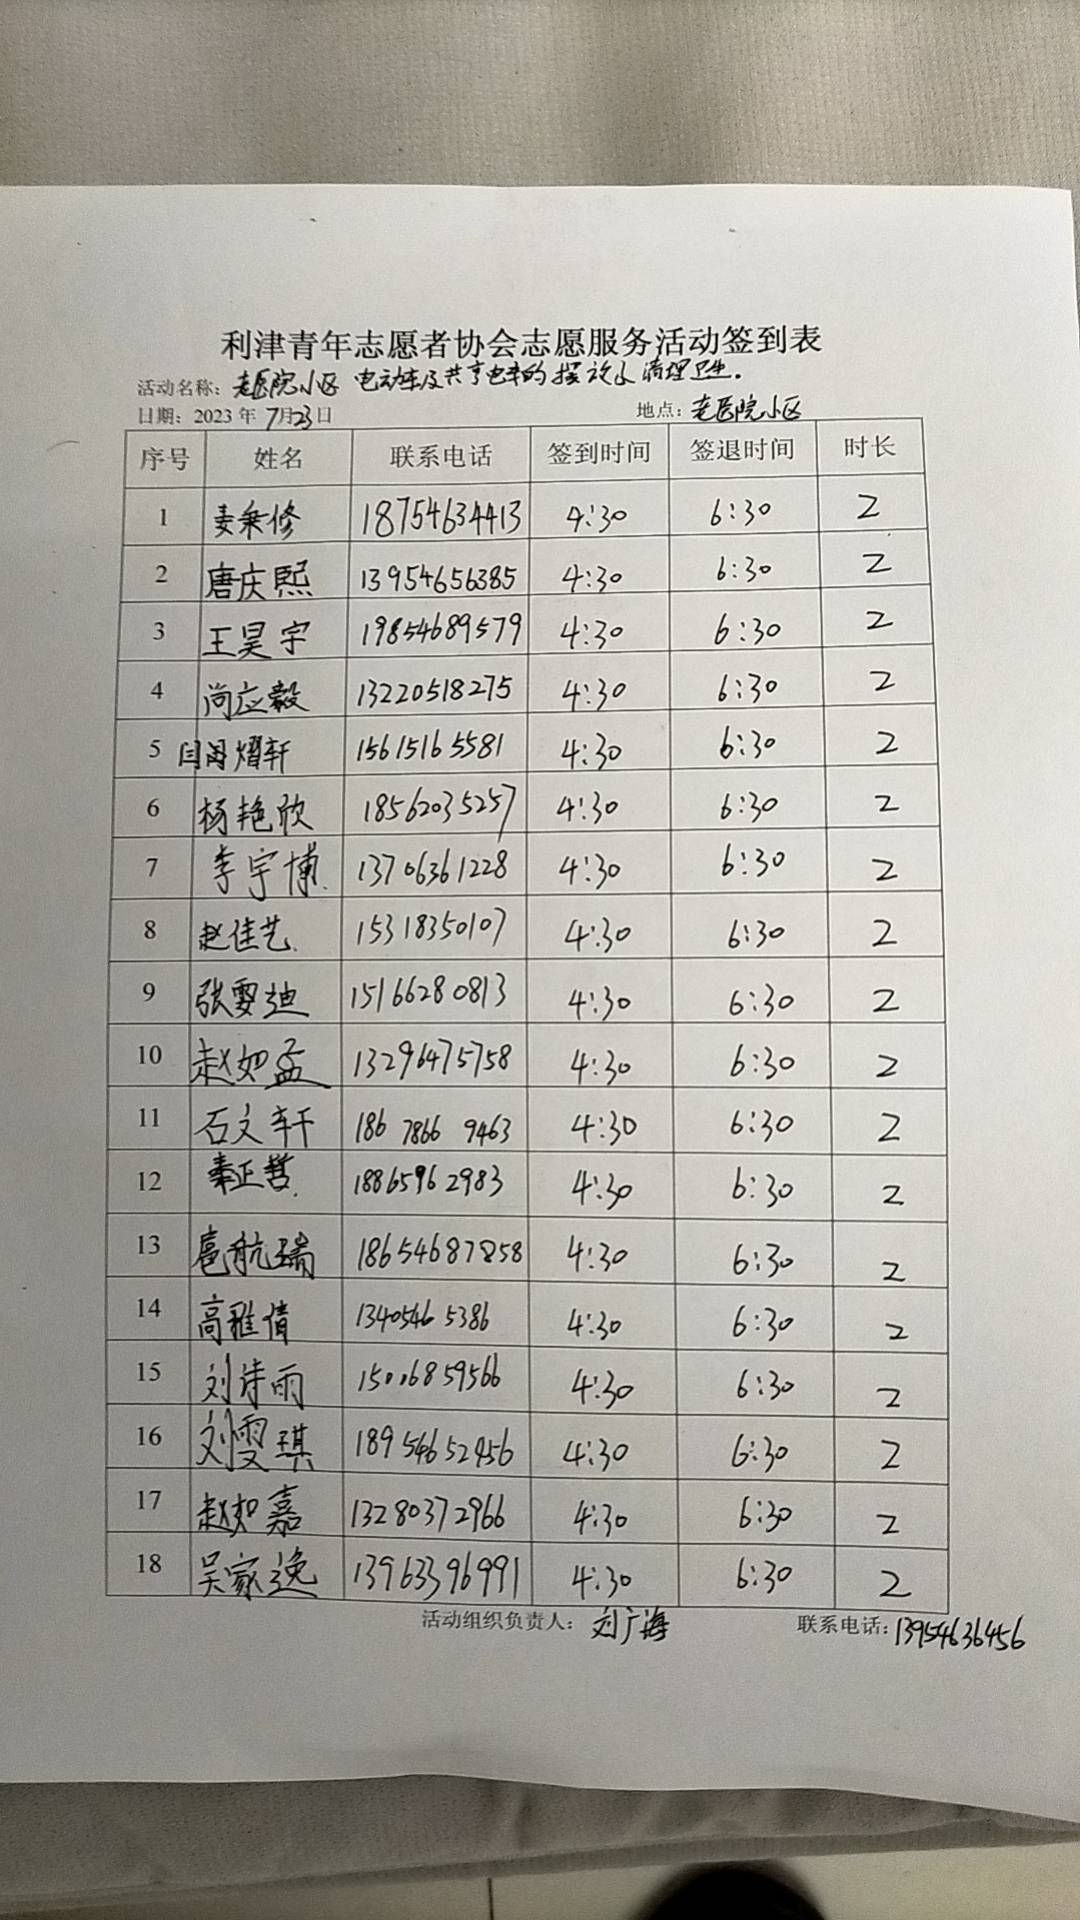 利津青年志愿者协会志愿服务活动签到表
活动名称：老医院小区 电动车及共享电车的摆放及清理卫生.
日期：2023年7月23日 地点：老医院小区
序号 姓名 联系电话 签到时间 签退时间 时长
1 秉修 18754634413 4:30 6:30 2
2 唐庆熙 13954656385 4:30 6:30 2
3 王昊宇 19854689579 4:30 6:30 2
4 尚应毅 13220518275 4:30 6:30 2
5 闫熠轩 15615165581 4:30 6:30 2
6 杨艳欣 18562035257 4:30 6:30 2
7 李宇博 13706361228 4:30 6:30 2
8 赵佳艺 15318350107 4:30 6:30 2
9 张雯迪 15166280813 4:30 6:30 2
10 赵如孟 13296475758 4:30 6:30 2
11 石文轩 186 7866 9463 4:30 6:30 2
12 秦正哲 18865962983 4:30 6:30 2
13 扈航瑞 18654687858 4:30 6:30 2
14 高雅倩 13405465386 4:30 6:30 2
15 刘诗雨 15006859566 4:30 6:30 2
16 刘雯琪 18954652956 4:30 6:30 2
17 赵如嘉 13280372966 4:30 6:30 2
18 吴家逸 13963396991 4:30 6:30 2
活动组织负责人：刘广海 联系电话：13954636456